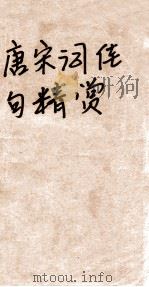 唐宋词佳
句精赏
mtoou.info